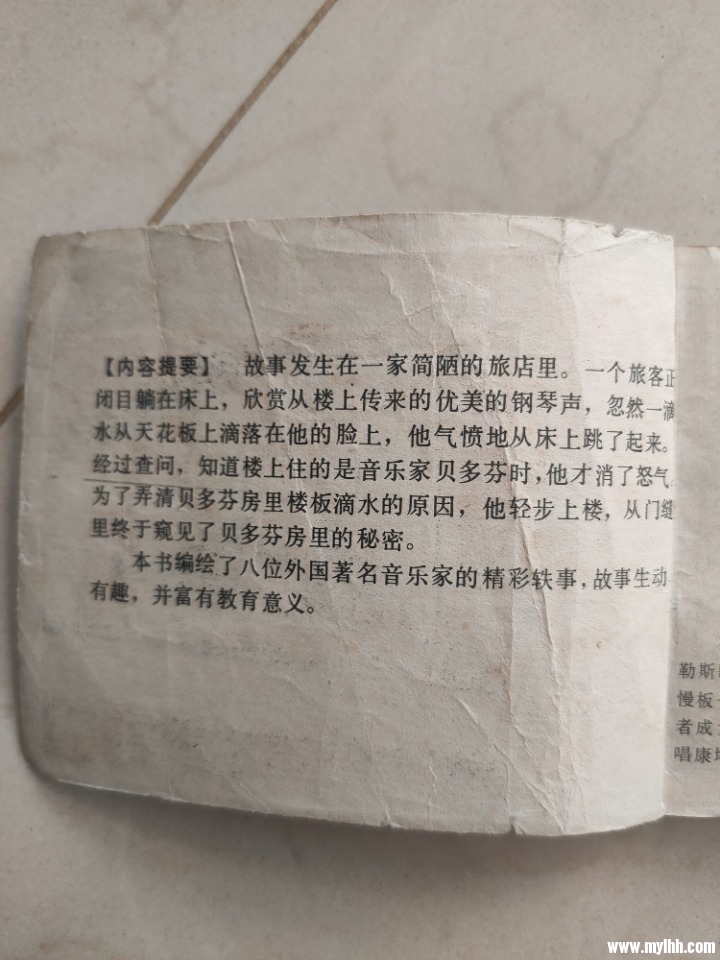 【内容提要】　故事发生在一家简陋的旅店里。一个旅客正
闭目躺在床上，欣赏从楼上传来的优美的钢琴声，忽然一滴
水从天花板上滴落在他的脸上，他气愤地从床上跳了起来。
经过查问，知道楼上住的是音乐家贝多芬时，他才消了怒气。
为了弄清贝多芬房里楼板滴水的原因，他轻步上楼，从门缝
里终于窥见了贝多芬房里的秘密。
本书编绘了八位外国著名音乐家的精彩轶事，故事生动
有趣，并富有教育意义。
勒斯
慢板
者成
唱康
www.mylhh.com